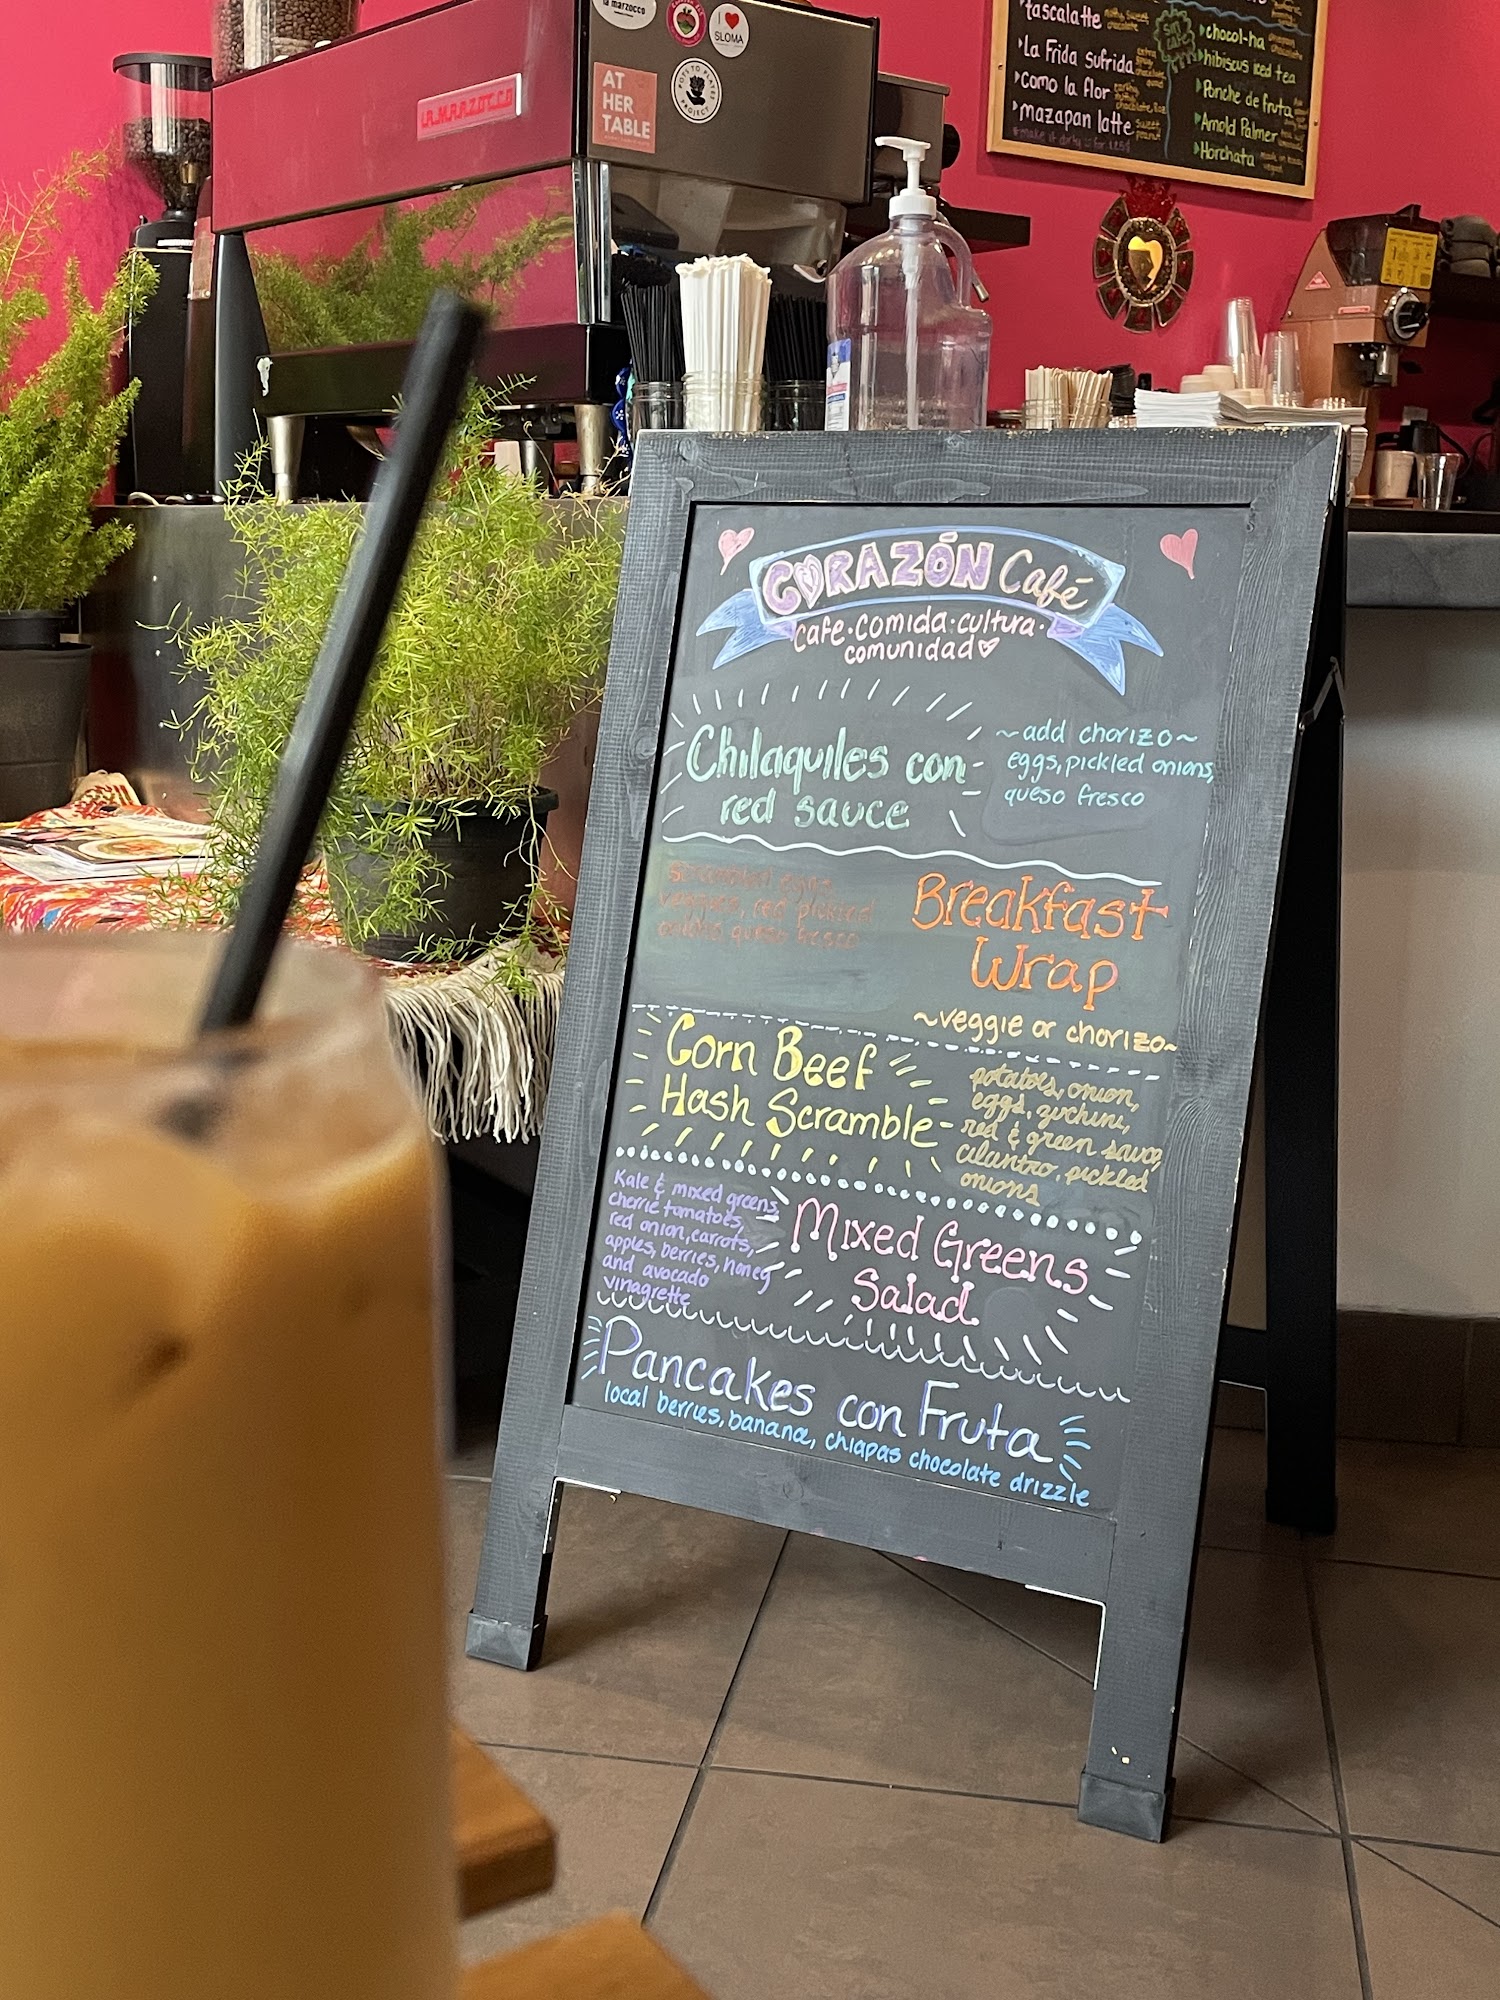 la marzocco
I ❤ SLOMA
AT
HER
TABLE
LA MARZOCCO
tascalatte
La Frida sufrida
como la flor
mazapan latte
chocol-ha
hibiscus iced tea
Ponche de fruta
Arnold Palmer
Horchata
CORAZÓN Café
cafe·comida·cultura·
comunidad
Chilaquiles con
red sauce
~add chorizo~
eggs, pickled onions,
queso fresco
scrambled eggs
veggies, red pickled
onions queso fresco
Breakfast
Wrap
~veggie or chorizo~
Corn Beef
Hash Scramble
potatoes, onion,
eggs, zuchini,
red & green sauce,
cilantro, pickled
onions
Kale & mixed greens,
cherrie tomatoes,
red onion, carrots,
apples, berries, honey
and avocado
vinagrette
Mixed Greens
Salad
Pancakes con Fruta
local berries, banana, chiapas chocolate drizzle